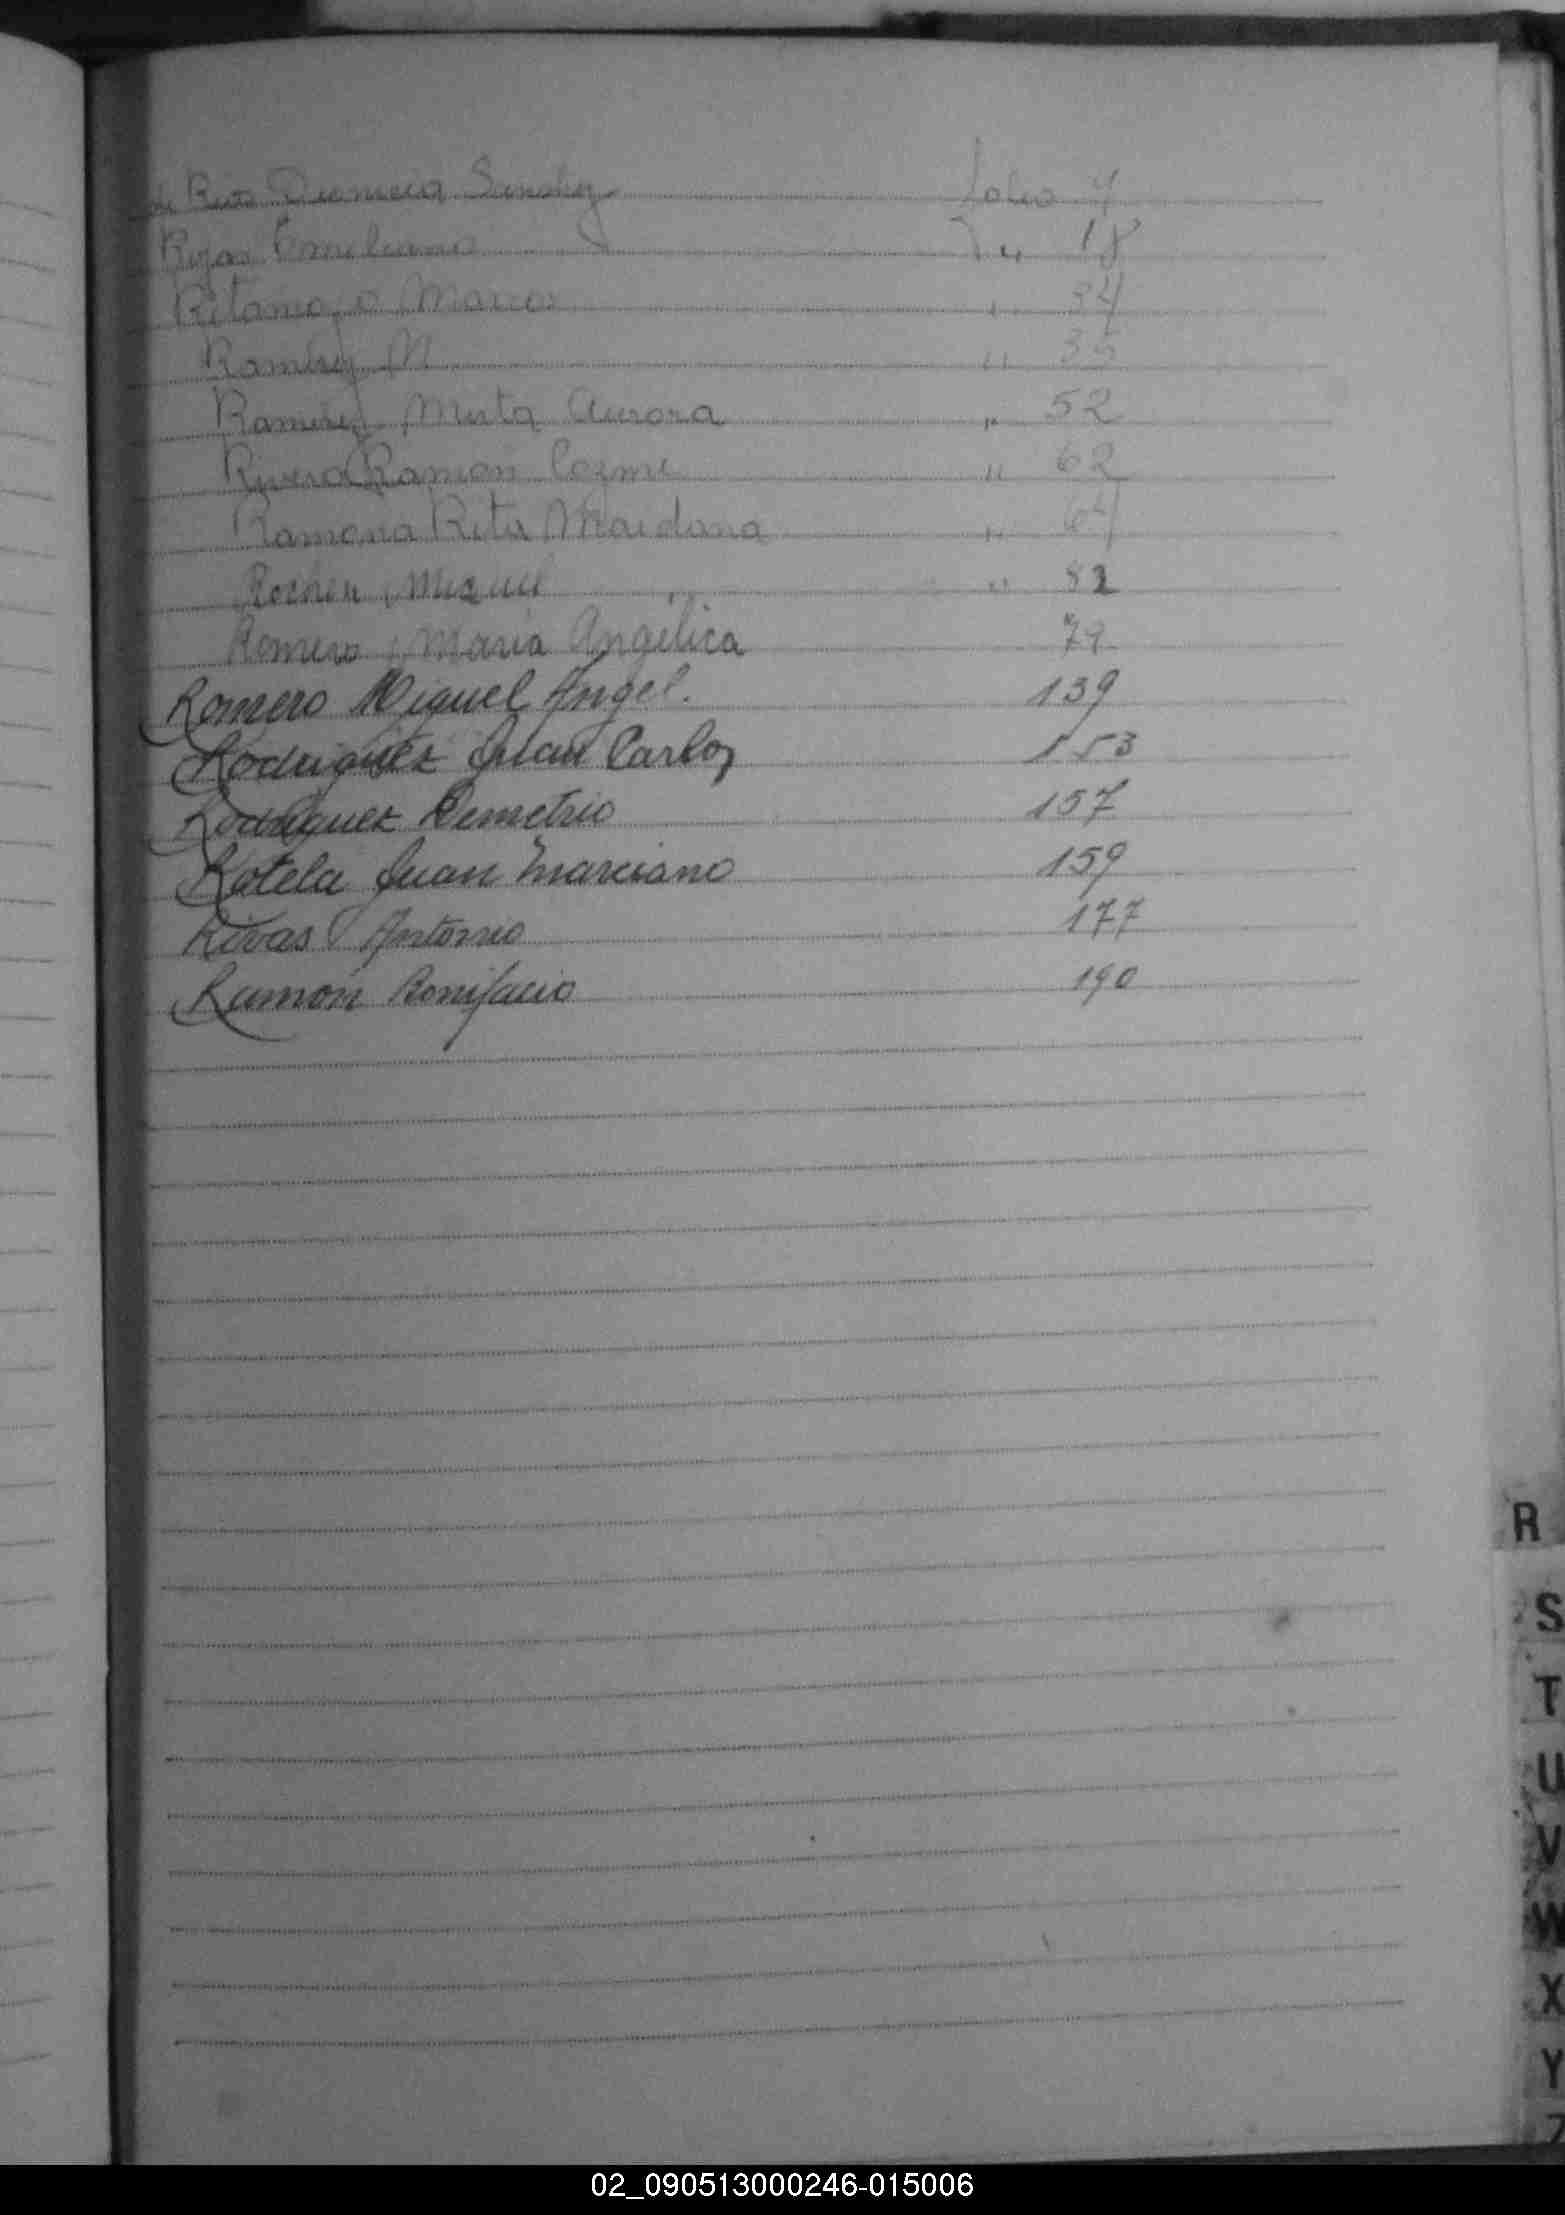 de Ruiz Dionicia Sanchez folio 4
Rojas Emiliano " 18
Retamozo Marcos " 34
Ramirez N " 35
Ramirez Mirta Aurora " 52
Rivero Ramon Cozme " 62
Ramona Rita Maidana " 64
Miguel " 82
Romero Maria Angelica 79
Romero Miguel Angel. 139
Rodriguez Juan Carlos 153
Rodriguez Demetrio 157
Rotela Juan Marciano 159
Rivas Antonio 177
Ramón Bonifacio 190
R
S
T
U
V
W
X
Y
Z
02_090513000246-015006